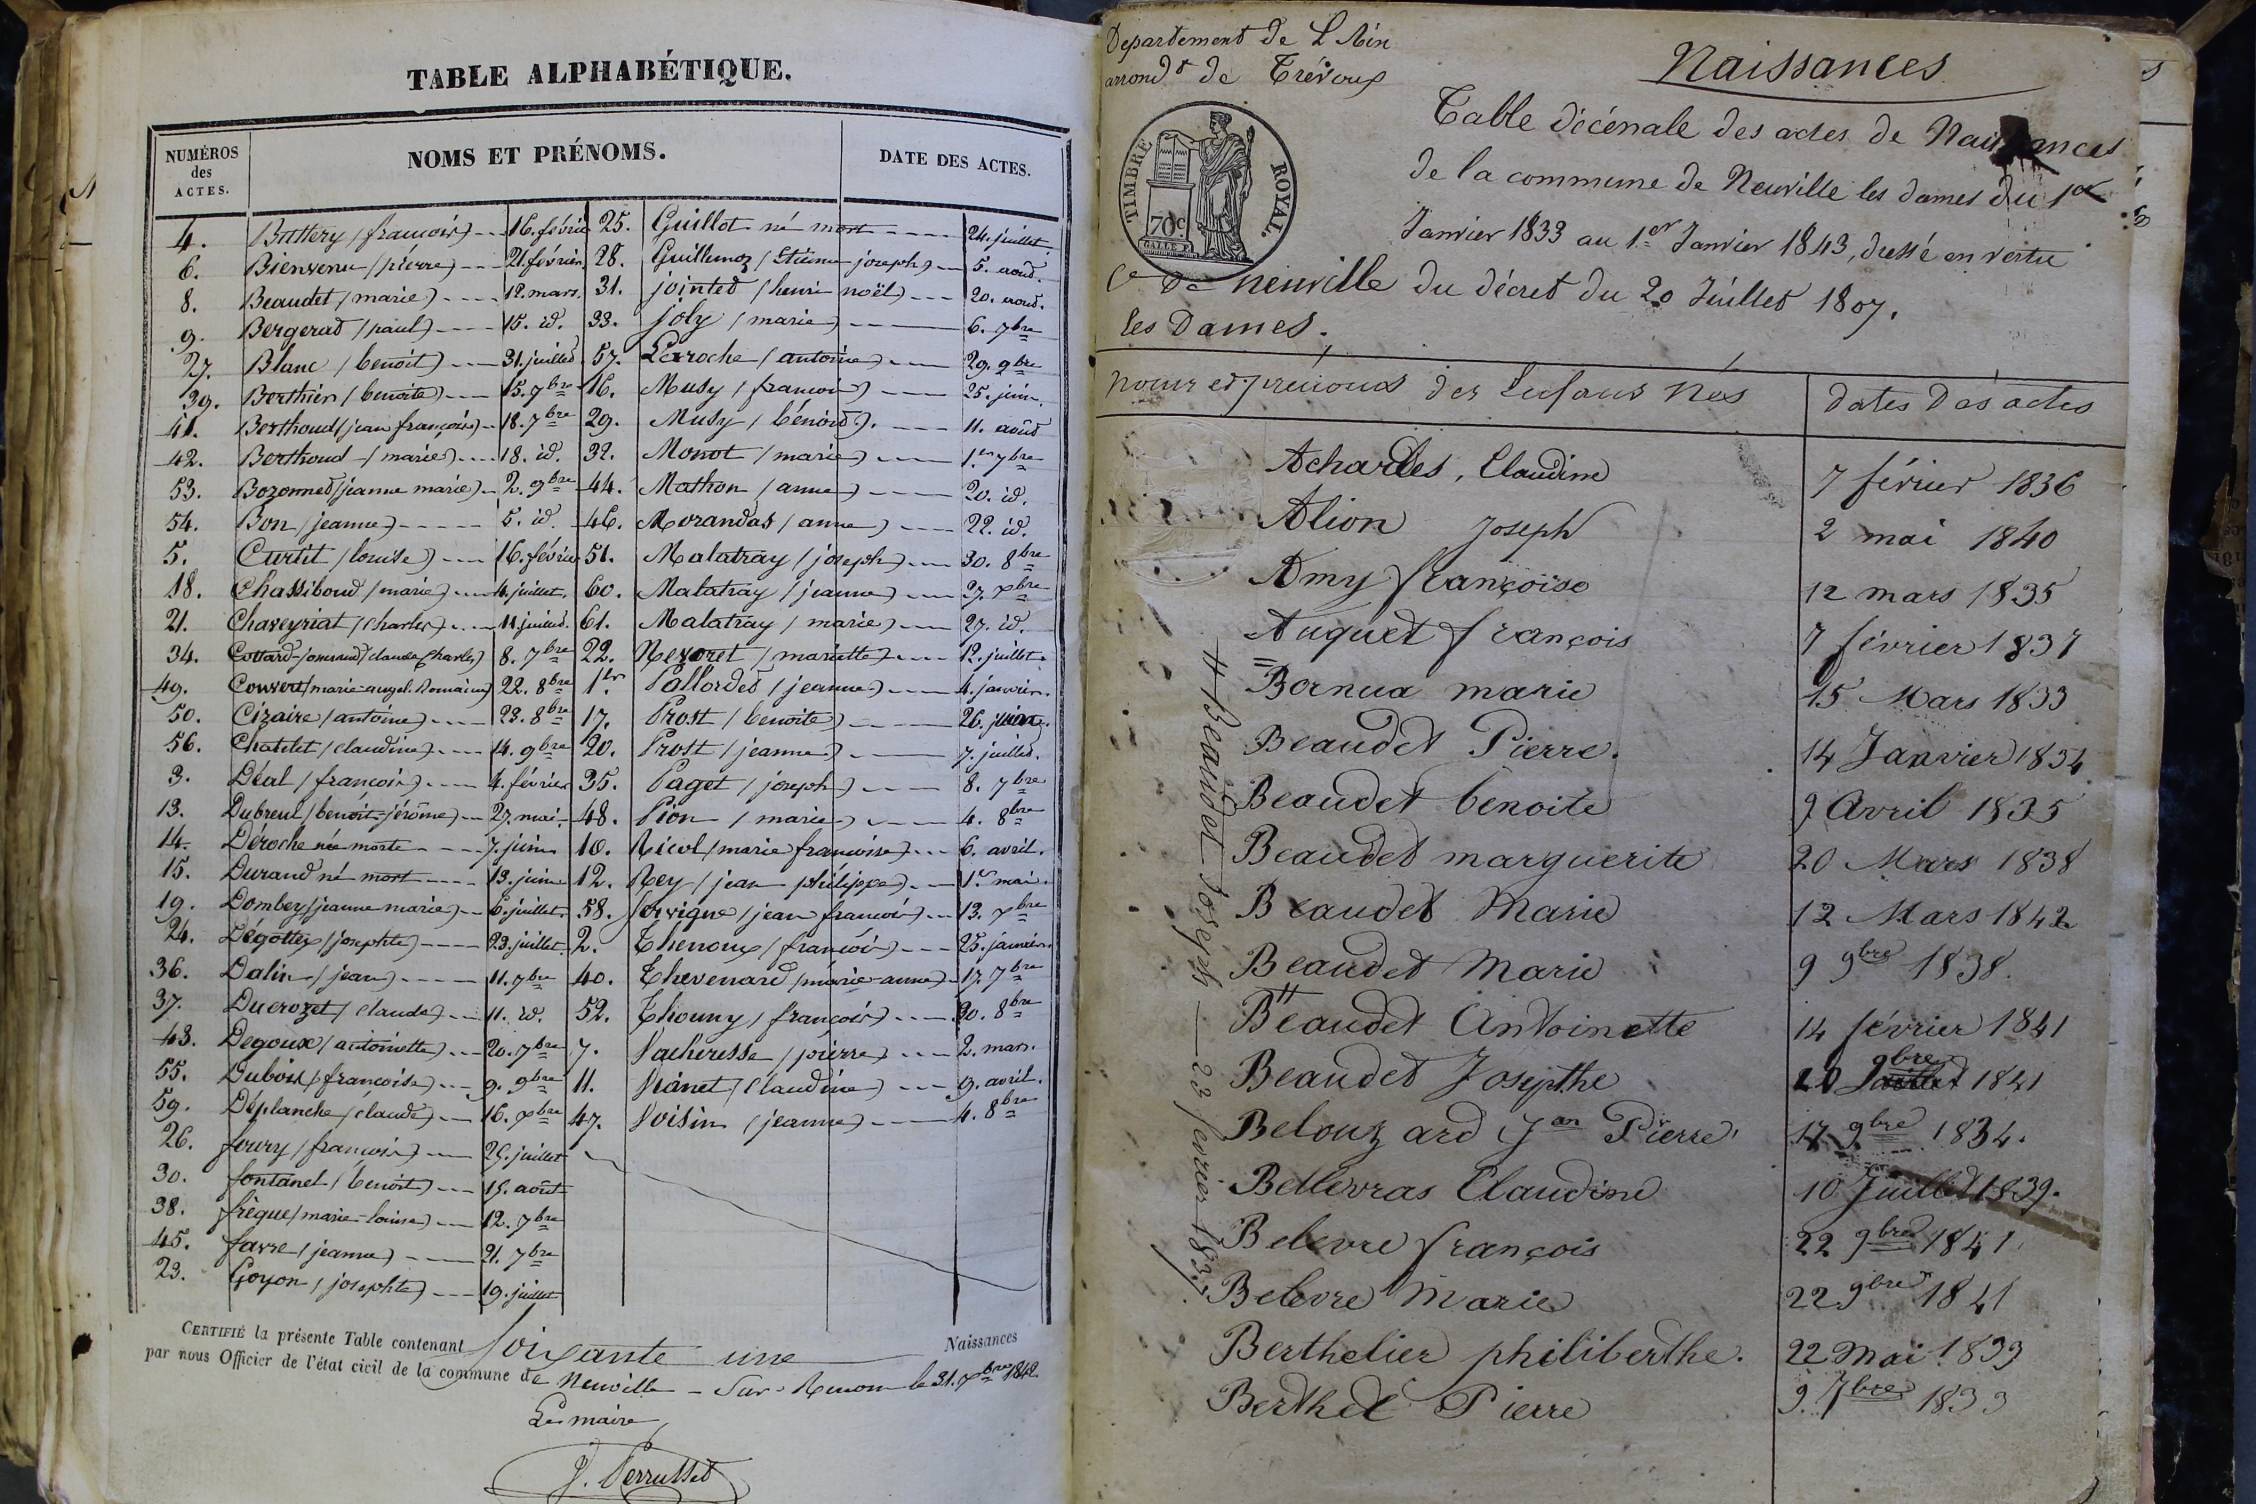 TABLE ALPHABÉTIQUE.
NUMÉROS des ACTES.
NOMS ET PRÉNOMS.
DATE DES ACTES.
4. Buttery (françois) 16. févrie
6. Bienvenu (pierre) 21. février
8. Beaudet (marie) 12. mars.
9. Bergerad (paul) 15. id.
27. Blanc (benoit) 31. juillet
39. Berthier (benoite) 15. 7bre
41. Berthoud (jean françois) 18. 7bre
42. Berthoud (marie) 18. id.
53. Bozonned (jeanne marie) 2. 9bre
54. Bon (jeanne) 5. id.
5. Curtit (louise) 16. févrie
18. Chassiboud (marie) 4. juillet.
21. Chaveyriat (charles) 11. juillet.
34. (claude charles) 8. 7bre
49. Convert (marie-angel. Romaine) 22. 8bre
50. Cizaire (antoine) 23. 8bre
56. Chatelet (claudine) 14. 9bre
3. Déal (françois) 4. février
13. Dubreul (benoit-jérôme) 27. mai.
14. Déroche née morte 7. juin
15. Durand né mort 13. juin
19. Dombey (jeanne marie) 6. juillet.
24. Dégottex (josephte) 23. juillet.
36. Dalin (jean) 11. 7bre
37. Ducrozet (claude) 11. id.
43. Degoux (antoinette) 20. 7bre
55. Dubois (françoise) 9. 9bre
59. Déplanche (claude) 16. xbre
26. foury (françois) 25. juillet
30. fontanel (benoit) 15. août
38. frèque (marie-louise) 12. 7bre
45. favre (jeanne) 21. 7bre
23. Goyon (josephte) 19. juillet
25. Guillot né mort 24. juillet
28. Guillemoz (Etienne joseph) 5. aoud.
31. jointed (henri noël) 20. aoud.
33. joly (marie) 6. 7bre
57. Laroche (antoine) 29. 9bre
16. Musy (françois) 25. juin.
29. Musy (bénoid). 11. août
32. Monot (marie) 1er 7bre
44. Mathon (anne) 20. id.
46. Morandas (anne) 22. id.
51. Malatray (joseph) 30. 8bre
60. Malatray (jeanne) 27. xbre
61. Malatray (marie) 27. id.
22. Nevoret (mariette) 12. juillet.
1er. Pallordet (jeanne) 4. janvier.
17. Prost (benoite) 26. juin.
20. Prost (jeanne) 7. juilled.
35. Paget (joseph) 8. 7bre
48. Pion (marie) 4. 8bre
10. Nicol (marie françoise) 6. avril.
12. Rey (jean philippe) 1er mai.
58. Servigne (jean françois) 13. xbre
2. Thenoux (françois) 25. janvier.
40. Thevenard (marie-anne) 17. 7bre
52. Thouny (françois) 30. 8bre
7. Vacheresse (pierre) 2. mars.
11. Vianet (claudine) 9. avril.
47. Voisin (jeanne) 4. 8bre
CERTIFIÉ la présente Table contenant Soixante une Naissances
par nous Officier de l'état civil de la commune de Neuville-Sur-Renom le 31. xbre 1842.
Le maire,
J. Perrusset
Departement de L'Ain
arrondt de Trévoux
TIMBRE ROYAL.
70c.
Naissances
Table décénale des actes de Naissances
de la commune de Neuville les dames du 1er
Janvier 1833 au 1er Janvier 1843, dressé en vertu
Ce de neuville du décret du 20 Juillet 1807.
les Dames.
noms et prénoms des Enfans Nés
dates des actes
Achardes, Claudine 7 février 1836
Alion Joseph 2 mai 1840
Amy françoise 12 mars 1835
Auguet françois 7 février 1837
Bornua marie 15 Mars 1833
Beaudet Pierre. 14 Janvier 1834
Beaudet benoite 9 Avril 1835
Beaudet marguerite 20 Mars 1838
Beaudet Marie 12 Mars 1842
Beaudet Marie 9 9bre 1838.
Beaudet Antoinette 14 février 1841
Beaudet Josepthe 20 9bre 1841
Belouzard Jan Pierre. 17 9bre 1834.
Bellevras Claudine 10 Juillet 1839.
Belevre françois 22 9bre 1841
Belevre Marie 22 9bre 1841
Berthelier philiberthe. 22 Mai 1833
Berthet Pierre 9. 7bre 1833
# Beaudet Joseph — 23 fevrier 1837.